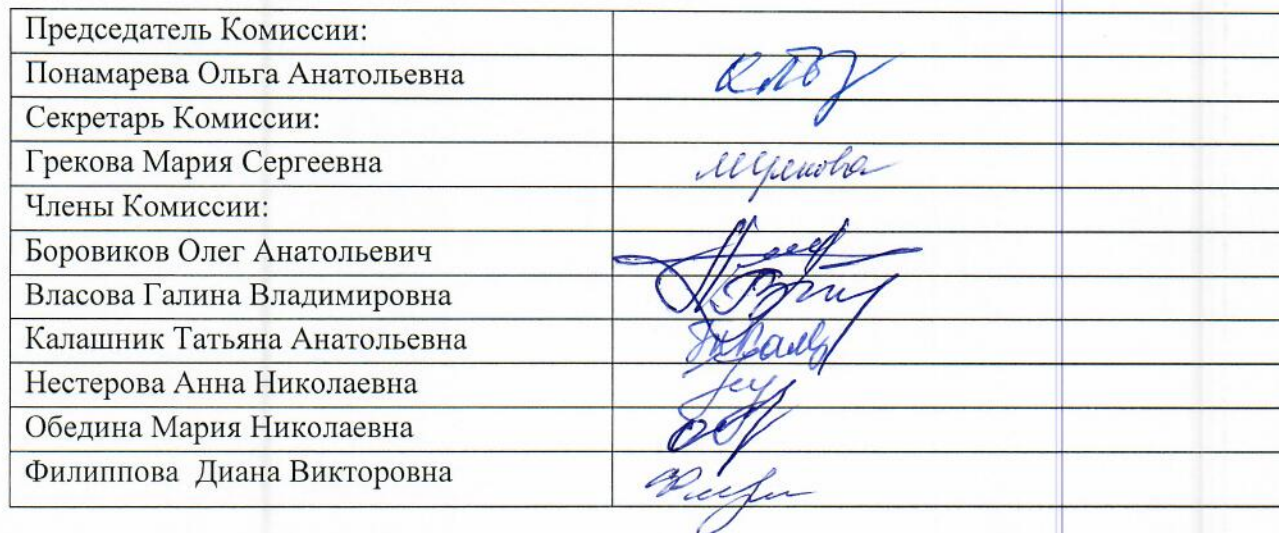 Председатель Комиссии:
Понамарева Ольга Анатольевна
Секретарь Комиссии:
Грекова Мария Сергеевна
Члены Комиссии:
Боровиков Олег Анатольевич
Власова Галина Владимировна
Калашник Татьяна Анатольевна
Нестерова Анна Николаевна
Обедина Мария Николаевна
Филиппова Диана Викторовна